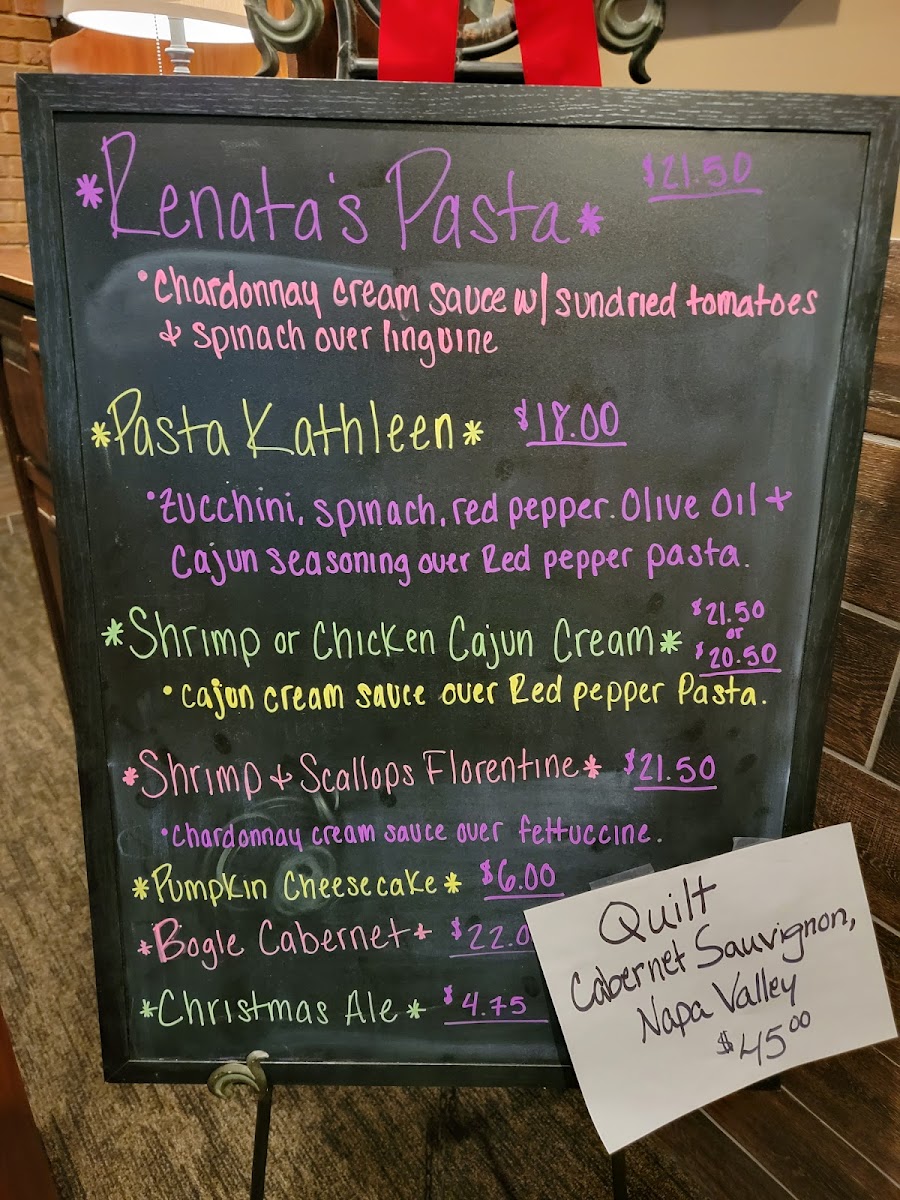 *Renata's Pasta* $21.50
•Chardonnay cream sauce w/ sundried tomatoes
& spinach over linguine
*Pasta Kathleen* $18.00
•Zucchini, spinach, red pepper. Olive Oil +
Cajun seasoning over Red pepper pasta.
*Shrimp or Chicken Cajun Cream* $21.50 or $20.50
•cajun cream sauce over Red pepper Pasta.
*Shrimp & Scallops Florentine* $21.50
•Chardonnay cream sauce over fettuccine.
*Pumpkin Cheesecake* $6.00
*Bogle Cabernet* $22.0
*Christmas Ale* $4.75
Quilt
Cabernet Sauvignon,
Napa Valley
$45.00